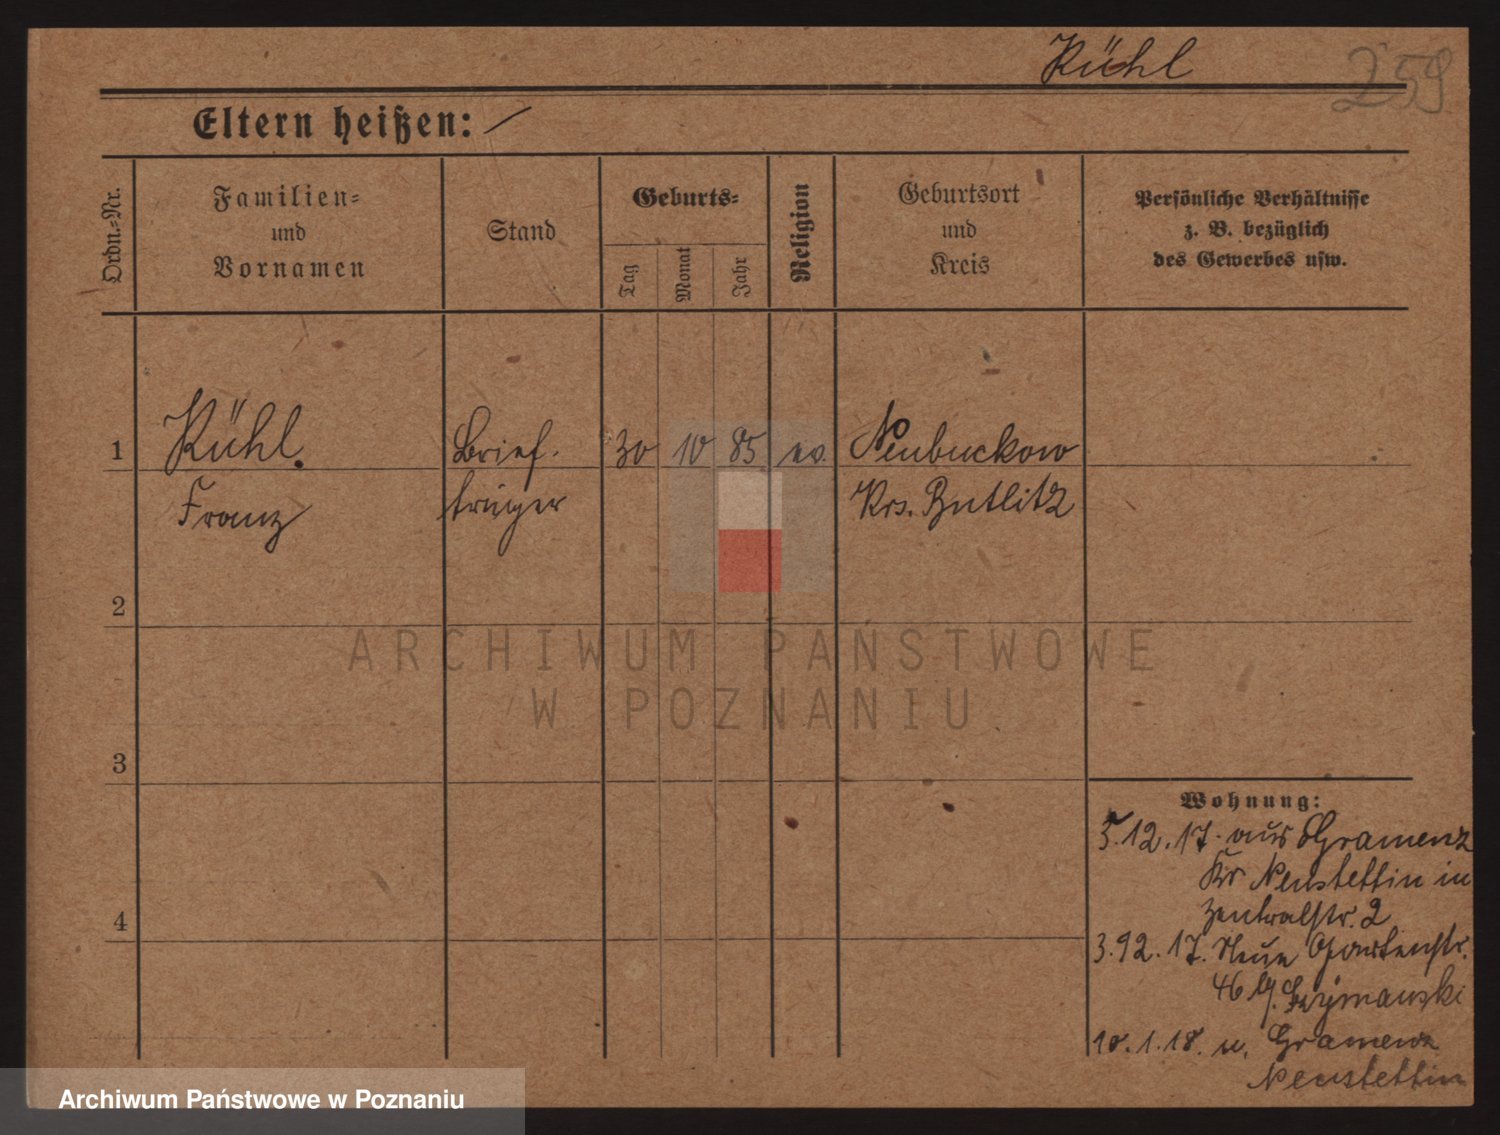 Rühl
259
Eltern heißen: /
Ordn.=Nr.
Familien=
und
Vornamen
Stand
Geburts=
Tag
Monat
Jahr
Religion
Geburtsort
und
Kreis
Persönliche Verhältnisse
z. B. bezüglich
des Gewerbes usw.
1
Rühl.
Franz
Brief-
träger
30
10
85
ev.
Neubuckow
Krs. Butlitz
2
3
4
Wohnung:
5.12.17. aus Gramenz
Kr Neustettin in
Zentralstr. 2
3.92.17. Neue Gartenstr.
46 b/. Szymanski
10.1.18. n. Gramenz
Neustettin
ARCHIWUM PAŃSTWOWE
W POZNANIU
Archiwum Państwowe w Poznaniu